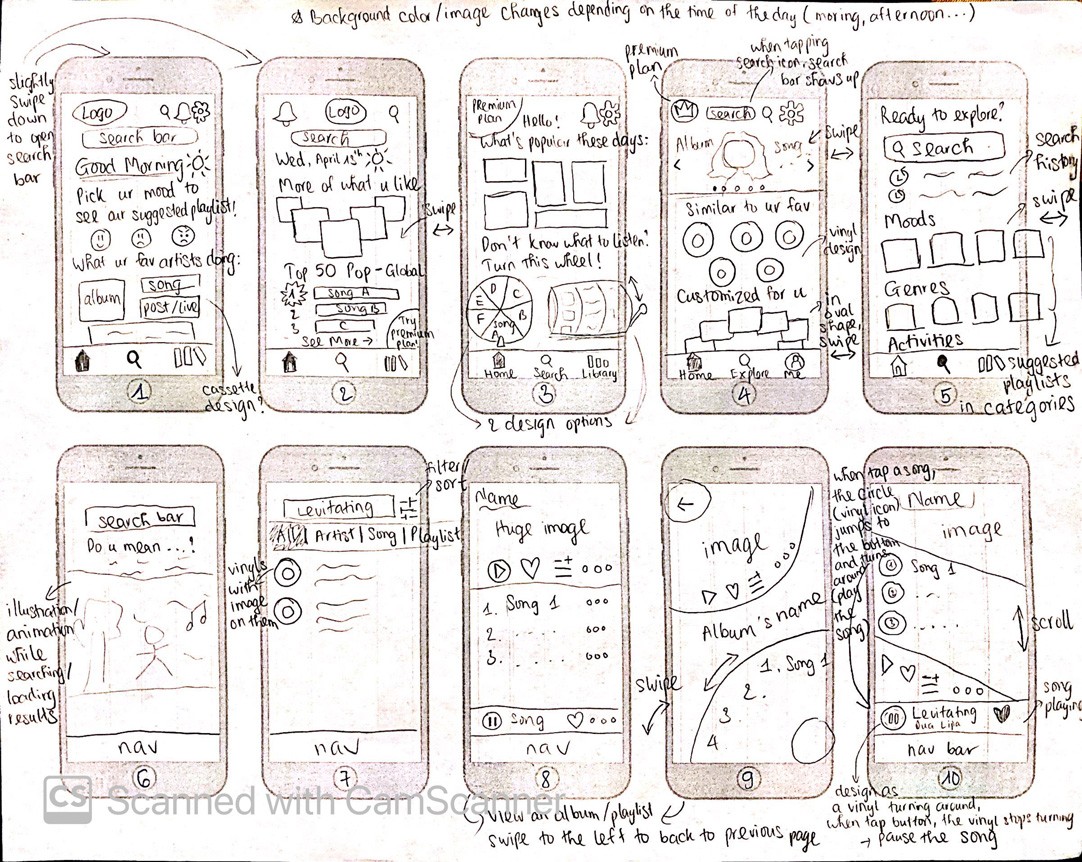 Background color/image changes depending on the time of the day (moring, afternoon...)
slightly
swipe
down
to open
search
bar
Logo
search bar
Good Morning
Pick ur mood to
see our suggested playlist!
What ur fav artists doing:
album
song
post/live
1
cassette
design?
Logo
search
Wed, April 13th
More of what u like
swipe
Top 50 Pop - Global
1
song A
2
song B
3
C
See More →
Try
premium
plan!
2
Premium
plan
Hello!
What's popular these days:
Don't know what to listen?
Turn this wheel!
D
C
E
B
F
song
A
Home
Search
Library
3
2 design options
premium
plan
when tapping
search icon, search
bar shows up
search
Album
Song
swipe
Similar to ur fav
vinyl
design
Customized for u
in
oval
shape,
swipe
Home
Explore
Me
4
Ready to explore?
search
search
history
swipe
Moods
Genres
Activities
suggested
playlists
in categories
5
search bar
Do u mean ...?
illustration/
animation
while
searching/
loading
results
nav
6
filter/
sort
Levitating
All | Artist | Song | Playlist
vinyls
with
image
on them
nav
7
Name
Huge image
1. Song 1
2.
3.
Song
nav
8
View an album/playlist
swipe to the left to back to previous page
←
image
Album's name
swipe
1. Song 1
2.
3
4
9
when tap a song,
the circle
(vinyl icon)
jumps to
the button
and turns
around
(play
the
song)
Name
image
1
Song 1
2
3
scroll
Levitating
Dua Lipa
song
playing
nav bar
10
design as
a vinyl turning around,
when tap button, the vinyl stops turning
→ pause the song
CS Scanned with CamScanner